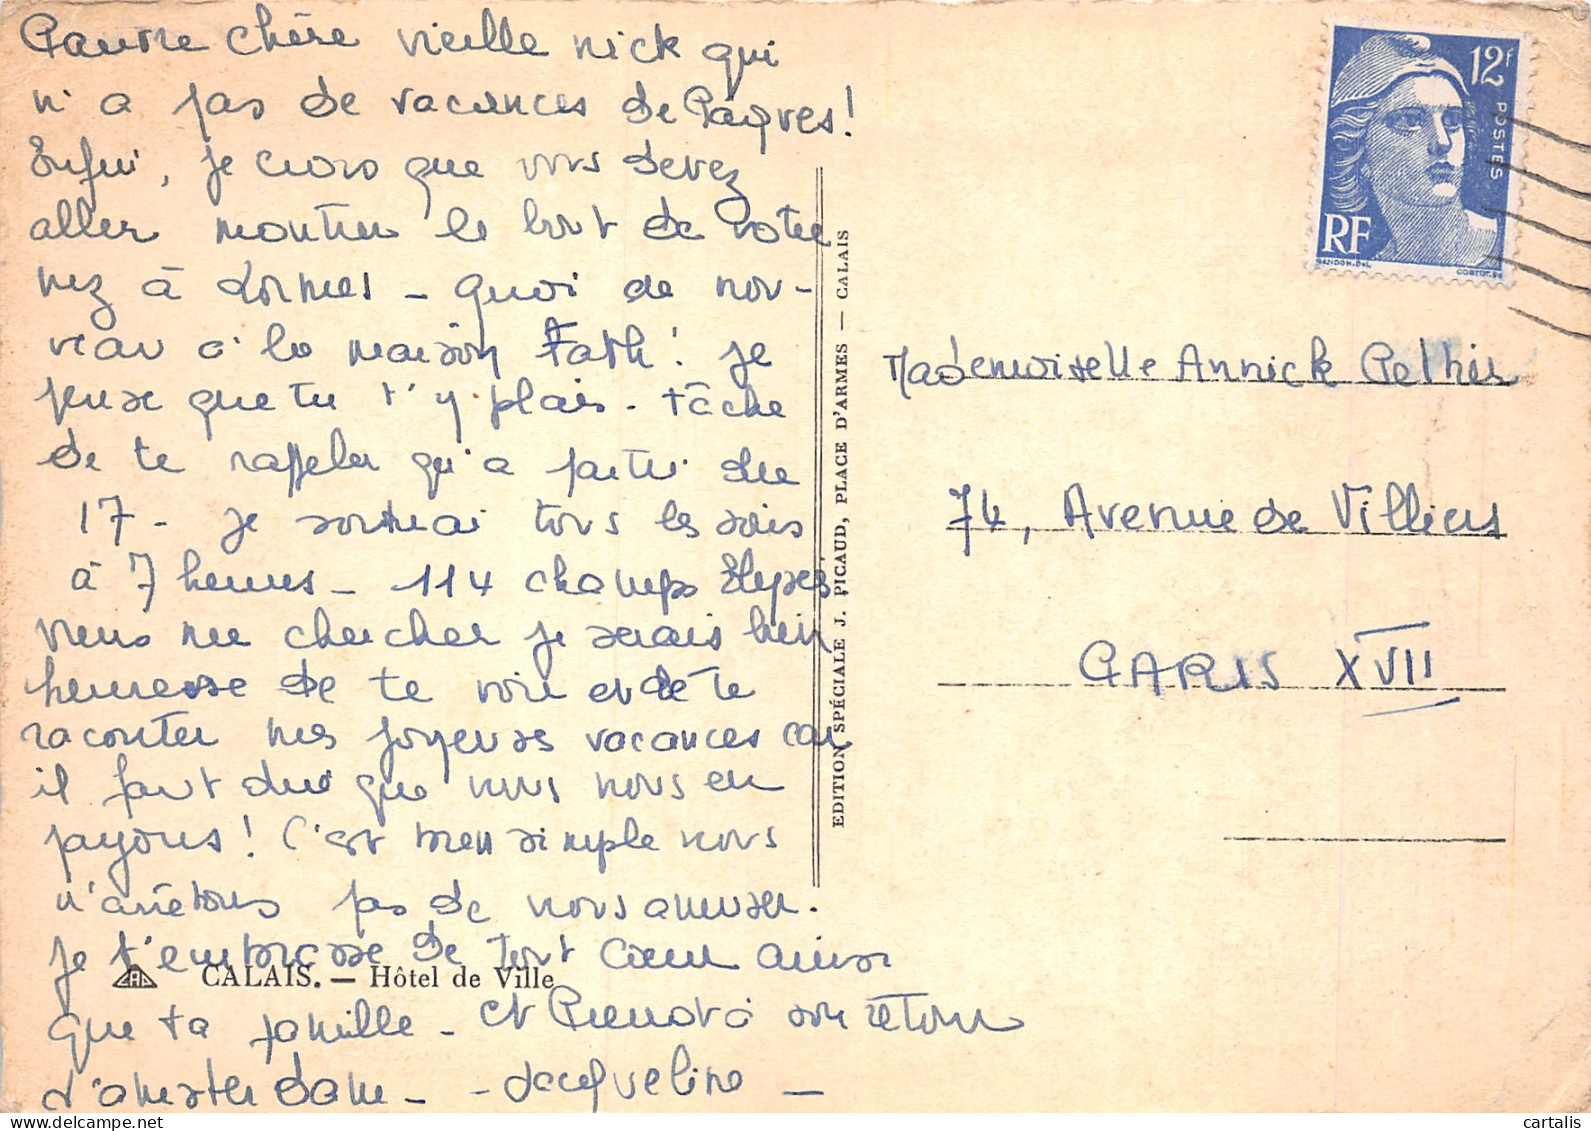 Pauvre chère vieille nick qui
n'a pas de vacances de Pâques!
Enfin, je crois que vous devez
aller montrer le bout de votre
nez à Lormes - Quoi de nou-
veau à la maison Fath! je
pense que tu t'y plais - tâche
de te rappeler qu'a partir du
17 - je sortirai tous les soirs
à 7 heures - 114 champs Elysées
viens me chercher je serais bien
heureuse de te voir et de te
raconter mes joyeuses vacances car
il faut dire que nous nous en
payons! C'est bien simple nous
n'arrêtons pas de nous amuser.
je t'embrasse de tout cœur ainsi
que ta famille - et à son retour
d'amsterdam - - Jacqueline -
CALAIS. — Hôtel de Ville
EDITION SPÉCIALE J. PICAUD, PLACE D'ARMES — CALAIS
12f
POSTES
RF
GANDON.DEL
Mademoiselle Annick
74, Avenue de Villiers
PARIS XVII
cartalis
www.delcampe.net